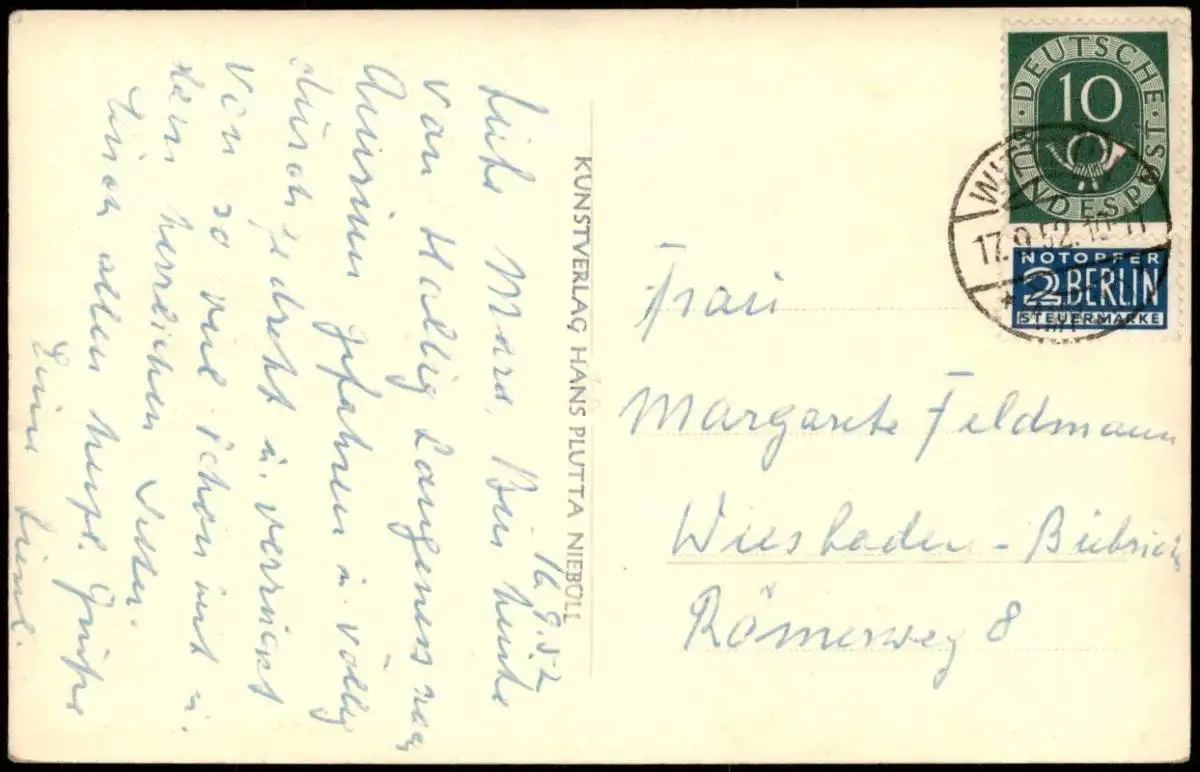 16.9.52
Liebe Mara, Bin heute
von Hallig Langeness nach
Amrum gefahren u. völlig
durchgedreht u. verrückt
von so viel Schönheit u.
dem herrlichen Wetter.
Euch allen herzl. Grüße
Deine
KUNSTVERLAG HANS PLUTTA NIEBÜLL
DEUTSCHE BUNDESPOST
10
17.9.52.10-11
NOTOPFER
2 BERLIN
STEUERMARKE
Frau
Margarete Feldmann
Wiesbaden-Biebrich
Römerweg 8